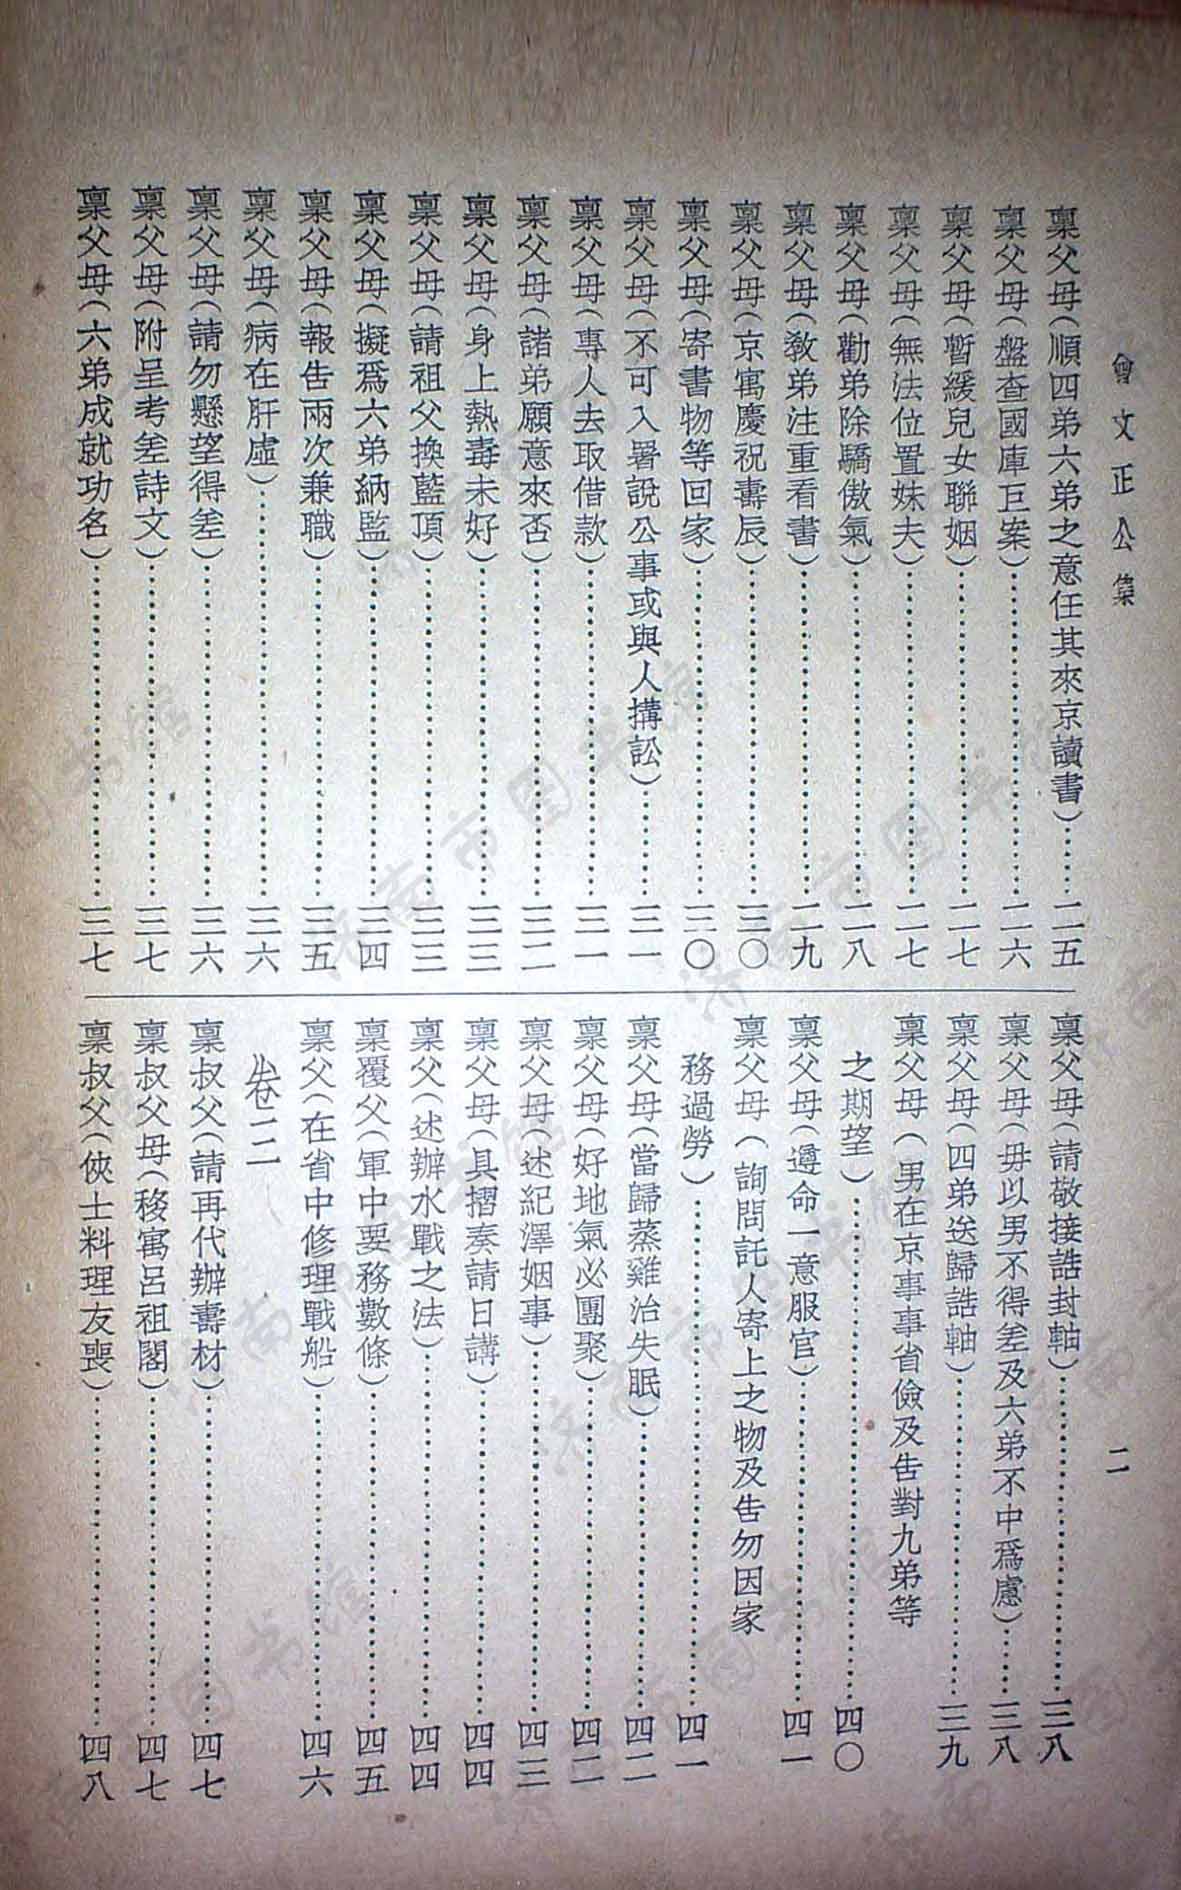 曾文正公集
二
稟父母(順四弟六弟之意任其來京讀書)……二五
稟父母(盤查國庫巨案)……二六
稟父母(暫緩兒女聯姻)……二七
稟父母(無法位置妹夫)……二七
稟父母(勸弟除驕傲氣)……二八
稟父母(教弟注重看書)……二九
稟父母(京寓慶祝壽辰)……三〇
稟父母(寄書物等回家)……三〇
稟父母(不可入署說公事或與人搆訟)……三一
稟父母(專人去取借款)……三一
稟父母(諸弟願意來否)……三二
稟父母(身上熱毒未好)……三三
稟父母(請祖父換藍頂)……三三
稟父母(擬爲六弟納監)……三四
稟父母(報告兩次兼職)……三五
稟父母(病在肝虛)……三六
稟父母(請勿懸望得差)……三六
稟父母(附呈考差詩文)……三七
稟父母(六弟成就功名)……三七
稟父母(請敬接誥封軸)……三八
稟父母(毋以男不得差及六弟不中爲慮)……三八
稟父母(四弟送歸誥軸)……三九
稟父母(男在京事事省儉及告對九弟等
之期望)……四〇
稟父母(遵命一意服官)……四一
稟父母(詢問託人寄上之物及告勿因家
務過勞)……四一
稟父母(當歸蒸雞治失眠)……四二
稟父母(好地氣必團聚)……四二
稟父母(述紀澤姻事)……四三
稟父母(具摺奏請日講)……四四
稟父(述辦水戰之法)……四四
稟覆父(軍中要務數條)……四五
稟父(在省中修理戰船)……四六
卷二
稟叔父(請再代辦壽材)……四七
稟叔父母(移寓呂祖閣)……四七
稟叔父(俠士料理友喪)……四八
济南市图书馆